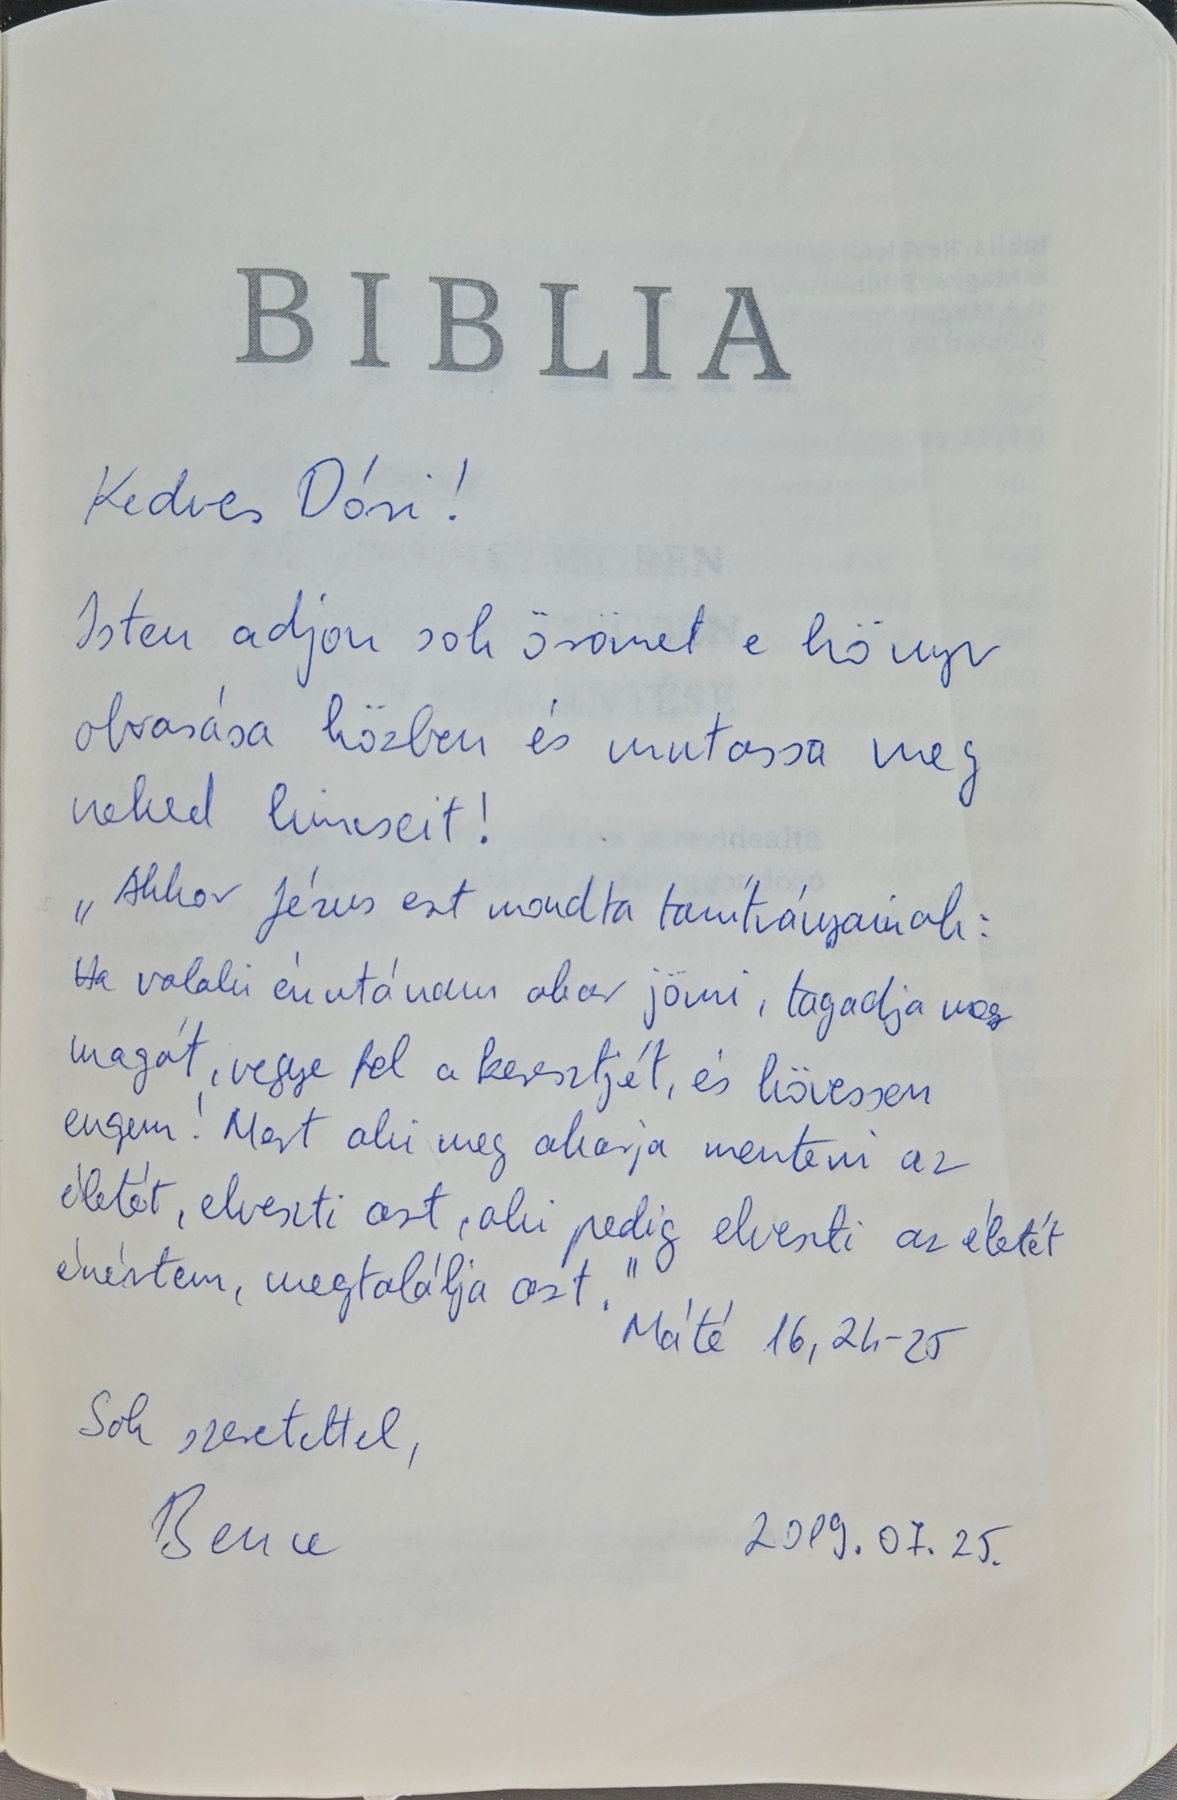 BIBLIA
Kedves Dóri!
Isten adjon sok örömet e könyv
olvasása közben és mutassa meg
neked kincseit!
„Akkor Jézus ezt mondta tanítványainak:
Ha valaki énutánam akar jönni, tagadja meg
magát, vegye fel a keresztjét, és kövessen
engem! Mert aki meg akarja menteni az
életét, elveszti azt, aki pedig elveszti az életét
énértem, megtalálja azt."
Máté 16, 24-25
Sok szeretettel,
Bence
2019. 07. 25.